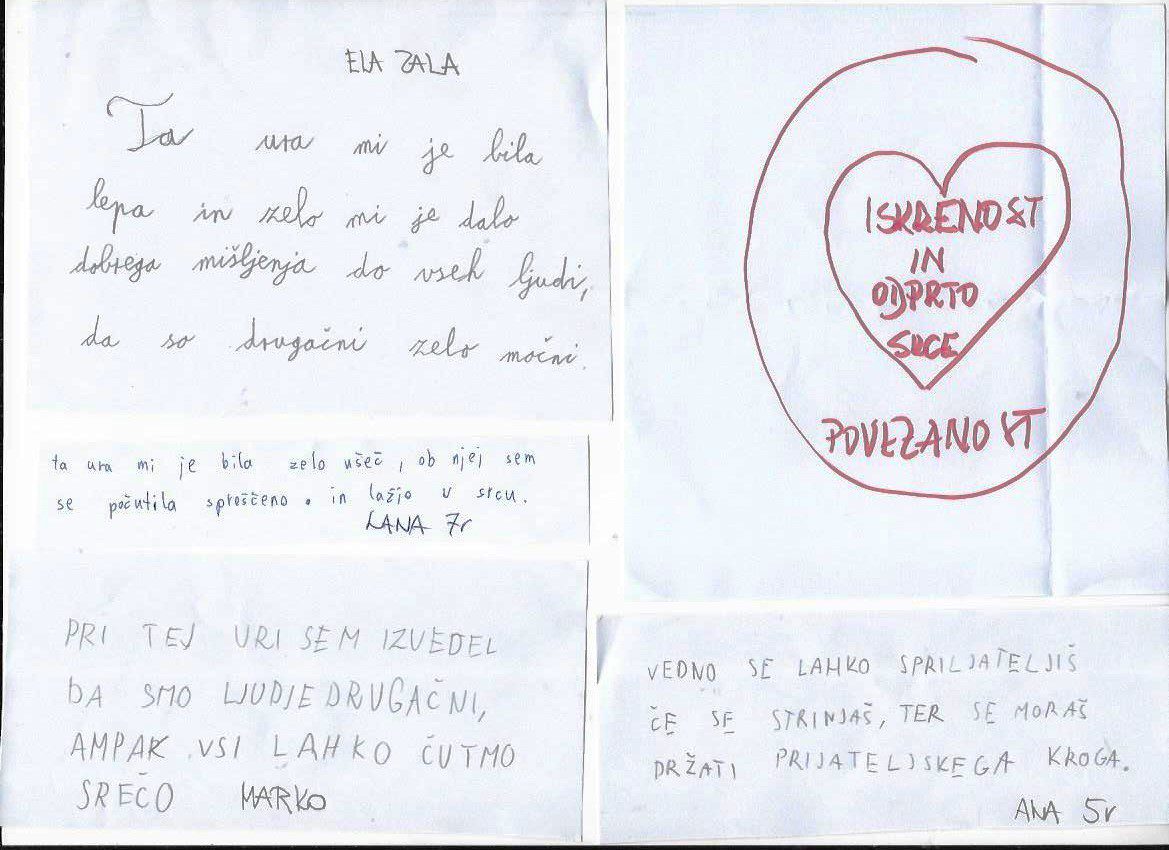 ELA ZALA
Ta ura mi je bila
lepa in zelo mi je dalo
dobrega mišljenja do vseh ljudi,
da so drugačni zelo močni.
ta ura mi je bila zelo ušeč, ob njej sem
se počutila sproščeno. in lažjo v srcu.
LANA 7r
PRI TEJ URI SEM IZVEDEL
DA SMO LJUDJE DRUGAČNI,
AMPAK VSI LAHKO ČUTMO
SREČO MARKO
ISKRENOST
IN
ODPRTO
SRCE
POVEZANOST
VEDNO SE LAHKO SPRIJATELJIŠ
ČE SE STRINJAŠ, TER SE MORAŠ
DRŽATI PRIJATELJSKEGA KROGA.
ANA 5r